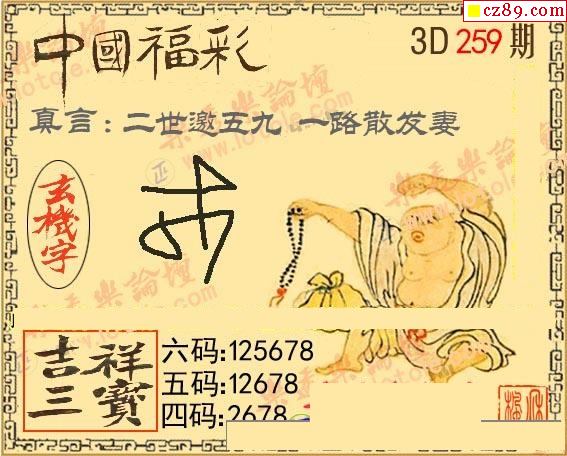 cz89.com
中國福彩
3D 259 期
真言:二世邀五九 一路散发妻
玄機字
吉祥三寶
六码:125678
五码:12678
四码:2678